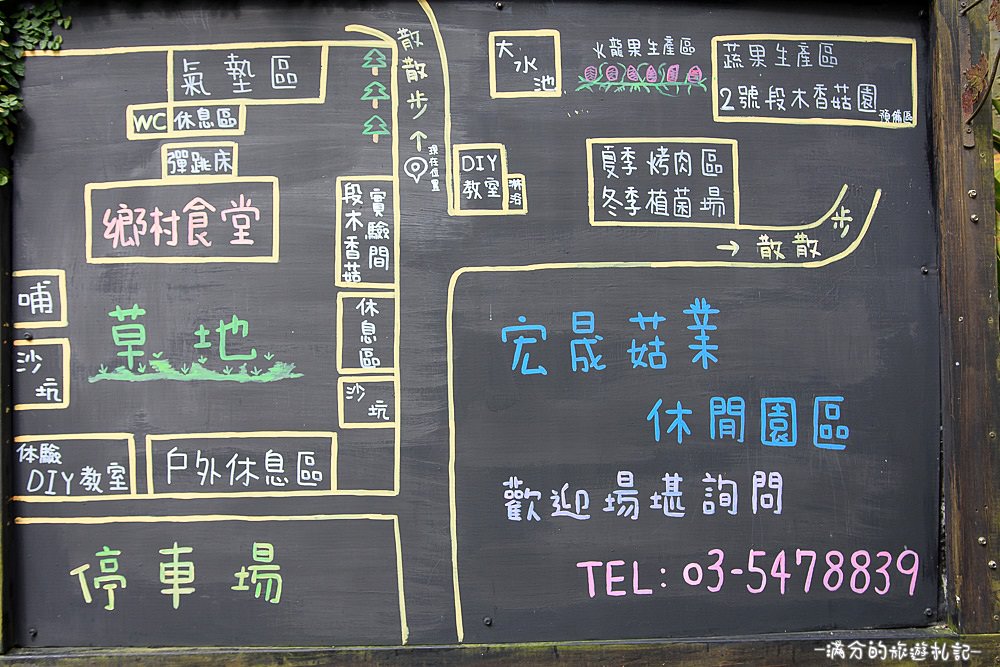 氣墊區
WC 休息區
彈跳床
鄉村食堂
哺
沙坑
草地
體驗
DIY教室
戶外休息區
停車場
段木香菇
實驗間
休息區
沙坑
散散步
現在位置
大水池
火龍果生產區
蔬果生產區
2號段木香菇園
預備區
DIY
教室
淋浴
夏季烤肉區
冬季植菌場
→散散步
宏晟菇業
休閒園區
歡迎場堪詢問
TEL:03-5478839
-滿分的旅遊札記-